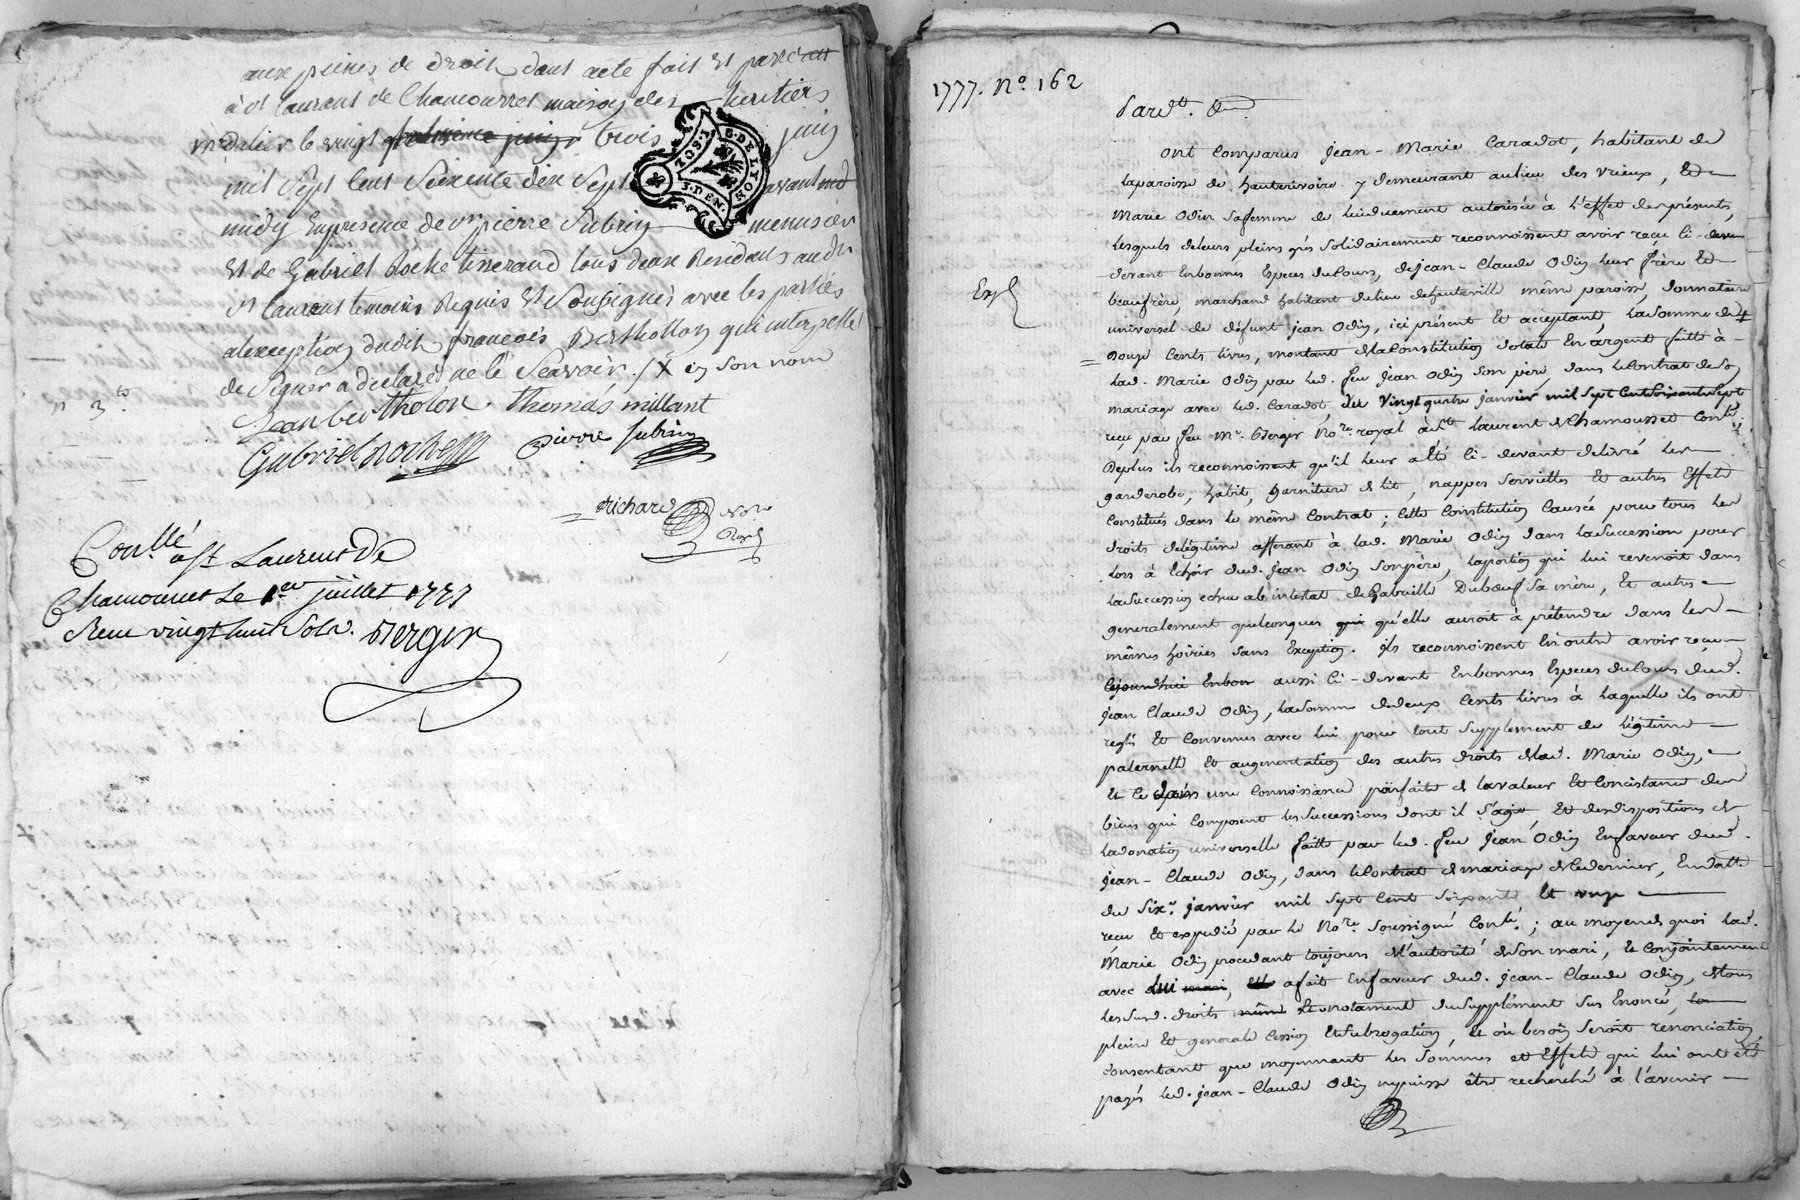 aux peines de droit dont acte fait et passé
à st laurent de Chamousset maison des heritiers
le vingt trois juin
mil Sept Cent Soixante dix Sept avant
midy En presence de sr pierre Subrin menusier
Et de Gabriel Roche tisserand tous deux Residants audit
st laurent temoins Requis Et Soussignés avec les parties
al'exception dudit françois Berthollon qui interpellé
de Signer a declaré ne le Scavoir. / X en son nom
Jean bertholon thomas millant
Gabriel roche pierre subrin
Richard Nore Royal
Con.llé a st Laurent De
Chamousset Le 1er juillet 1777
Reçu vingt huit Sols. Berger
2.SOLS.
G.DE LYON
3.DEN.
1777. No. 162
Pardt.
ont Comparus jean-Marie Caradot, habitant de
la paroisse de hauterivoire y demeurant au lieu des vrieux, Et
Marie Odin sa femme de lui duement autorisée à l'effet des présentes,
lesquels de leurs pleins grés solidairement reconnoissent avoir reçu ci-
devant En bonnes Especes du Cours, de jean-Claude Odin leur frère Et
beaufrère, marchand habitant du lieu de hauteville même paroisse, donnataire
universel de défunt jean Odin, ici présent Et acceptant, la Somme de
Douze Cents livres, montant de la Constitution dotale En argent faitte à
lad. Marie Odin par led. feu jean Odin son pere, dans le Contrat de Son
mariage avec led. Caradot, du Vingt quatre janvier mil Sept Cent Soixante Sept
reçu par feu Me. Berger Nore. royal à St. Laurent de Chamousset Conlé.;
Deplus ils reconnoissent qu'il leur a été ci-devant delivré les
garderobe, habit, garniture de lit, nappes serviettes Et autres Effets
Constitués dans le même Contrat; Cette Constitution Causée pour tous les
droits de légitime afferant à lad. Marie Odin dans la Succession pour
lors à Echoir dud. jean Odin son père, la portion qui lui revenoit dans
la Succession echue ab intestat de Gabrielle Duboeuf sa mère, Et autres
generalement quelconques qu'elle auroit à prétendre dans les
mêmes hoiries sans Exception. ils reconnoissent En outre avoir reçu
aussi Ci-devant En bonnes Especes du Cours dud.
jean Claude Odin, la Somme de deux Cents livres à laquelle ils ont
reglé Et Convenus avec lui pour tout Supplement de légitime
paternelle Et augmentation des autres droits de lad. Marie Odin,
Et Ce après une Connoissance parfaite de la valeur Et Concistance des
biens qui Composent les Successions dont il s'agit, Et des dispositions de
la donation universelle faitte par led. feu jean Odin En faveur dud.
jean-Claude Odin, dans le Contrat de mariage de Ce dernier, En datte
du Six. janvier mil Sept Cent Soixante Et onze
reçu Et expedié par le Nore. Soussigné Conlé.; au moyen de quoi lad.
Marie Odin procedant toujours de l'autorité de Son mari, Et Conjointement
avec lui, a fait En faveur dud. jean-Claude Odin, de tous
les Susd. droits Et notament du Supplément sus Enoncé,
pleine Et generale Cession Et Subrogation, Et où besoin Seroit renonciation
Consentant que moyennant les Sommes et Effets qui lui ont été
payés led. jean-Claude Odin ne puisse être recherché à l'avenir